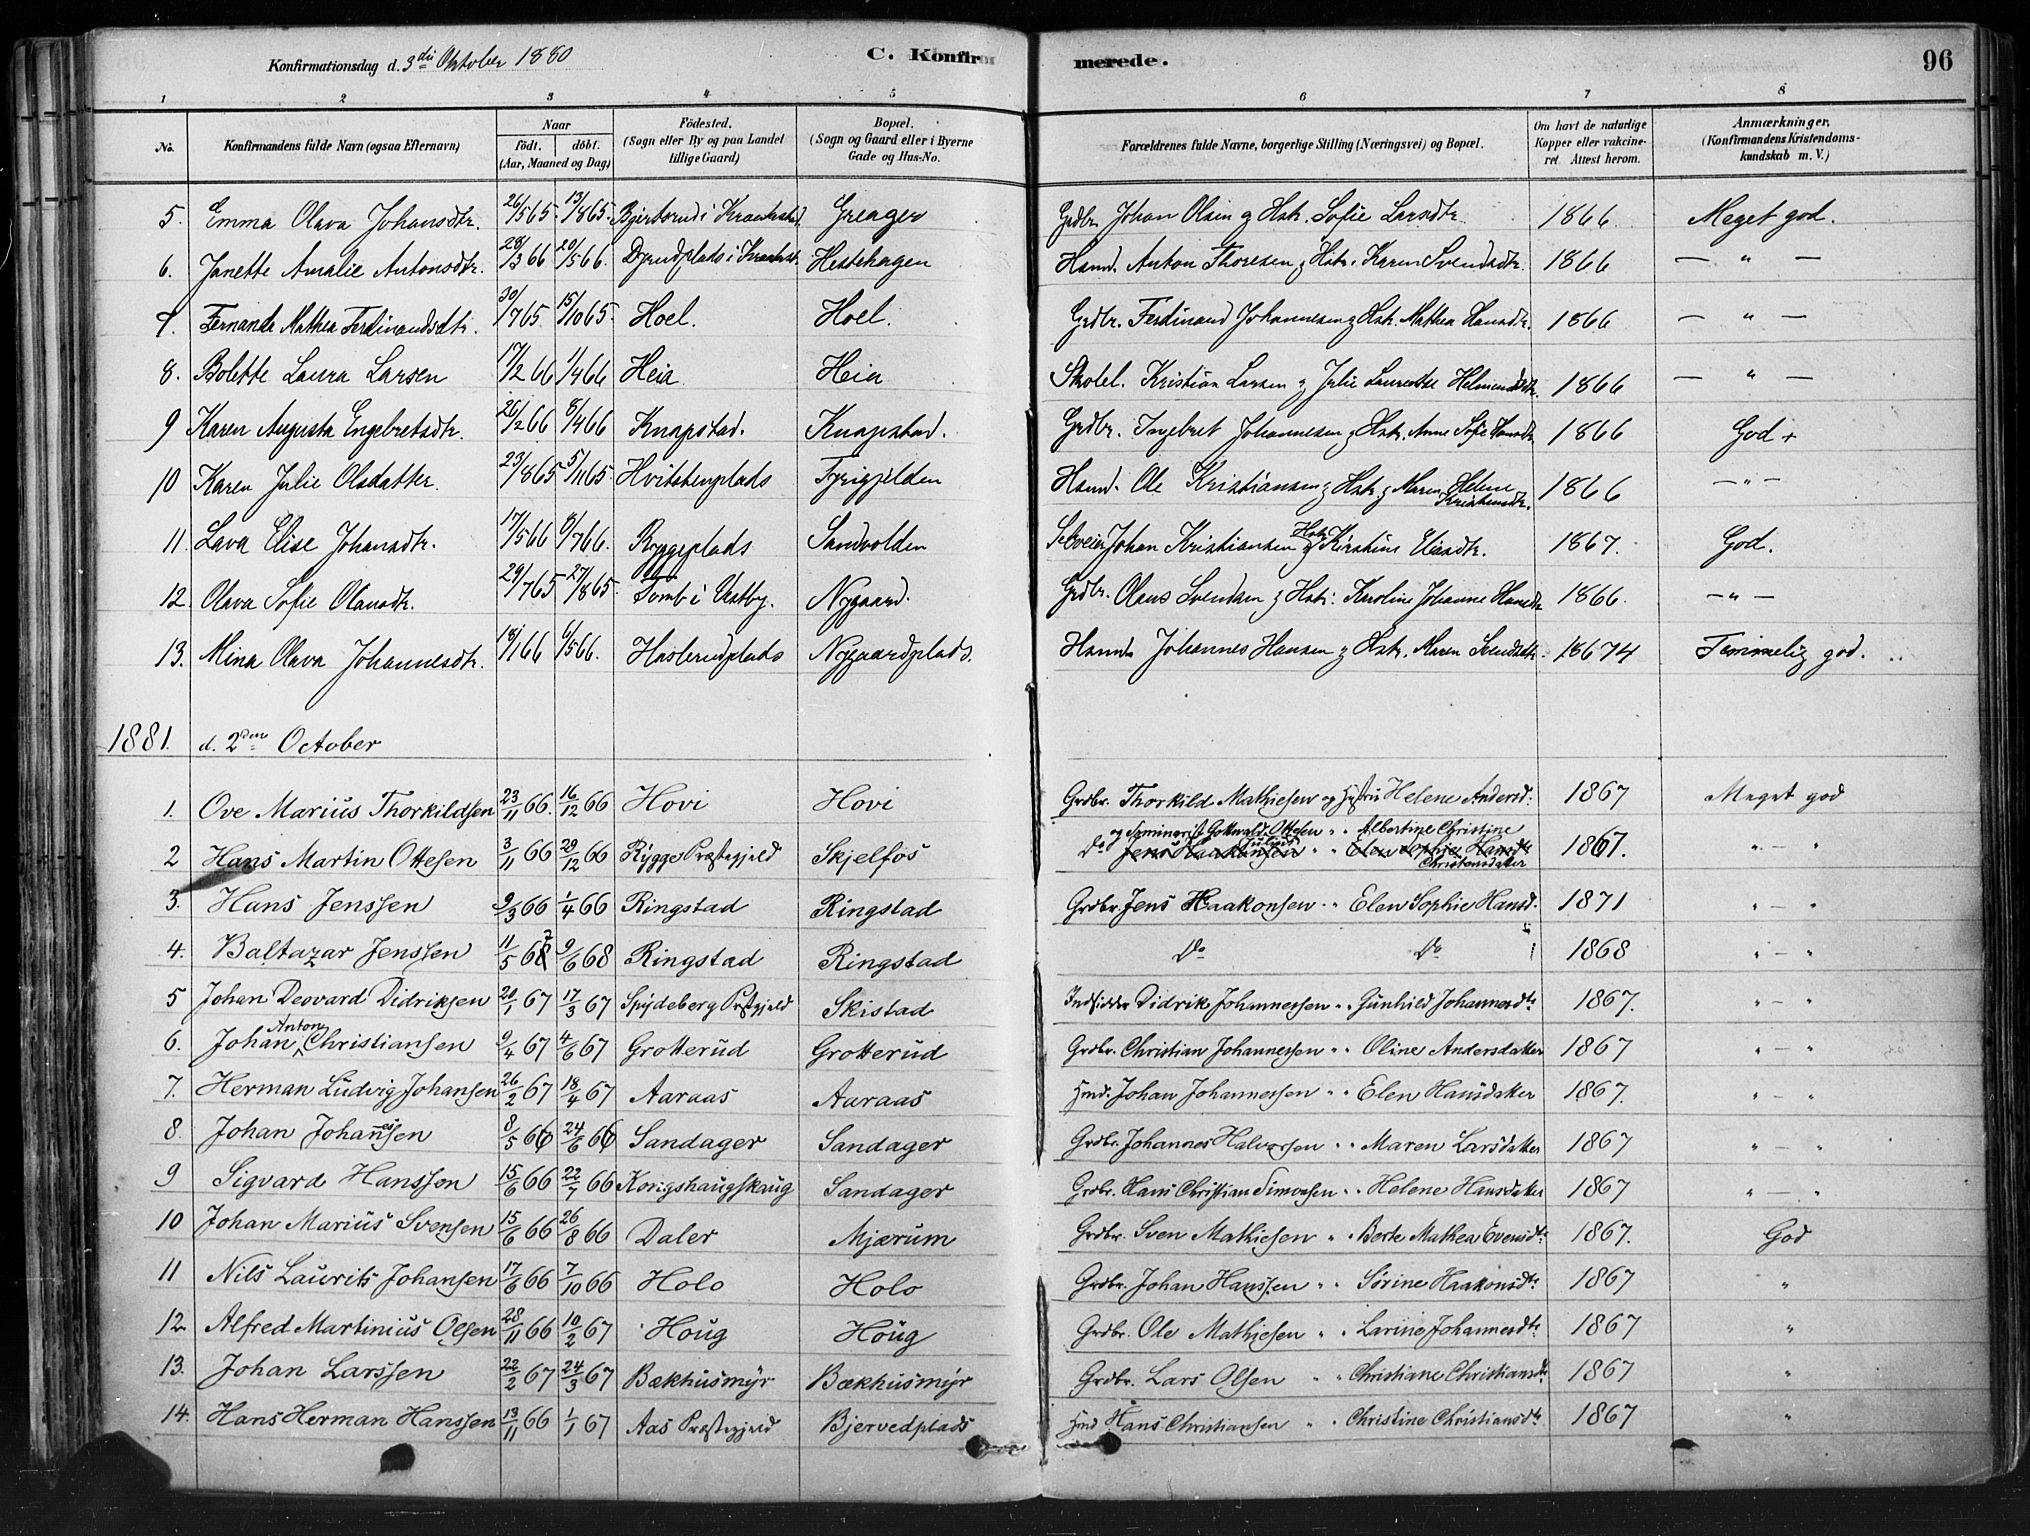 Konfirmationsdag d. 3die Oktober 1880 C. Konfirmerede. 96
1 2 3 4 5 6 7 8
No. Konfirmandens fulde Navn (ogsaa Efternavn) Naar födt. döbt. (Aar, Maaned og Dag) Födested. (Sogn eller By og paa Landet tillige Gaard) Bopæl. (Sogn og Gaard eller i Byerne Gade og Hus-No. Forældrenes fulde Navne, borgerlige Stilling (Næringsvei) og Bopæl. Om havt de naturlige Kopper eller vakcineret. Attest herom. Anmærkninger, (Konfirmandens Kristendomskundskab m. V.)
5. Emma Olava Johansdtr. 26/5 65. 13/8 65. i Kraakstad Greager Grdbr. Johan Olsen & Hstr. Sofie Larsdtr. 1866. Meget god.
6. Janette Amalie Antonsdtr. 28/3 66 20/5 66. Hestehagen Hsmd. Anton Thoresen & Hstr. Karen Svendsdtr. 1866 — " —
7. Fernanda Mathea Ferdinandsdtr. 30/7 65. 15/10 65. Hoel. Hoel. Grdbr. Ferdinand Johannesen & Hstr. Mathea Hansdtr. 1866 — " —
8. Bolette Laura Larsen 17/2 66 1/4 66 Heia Heia Skolel. Kristian Larsen & Julie Laurentse 1866 — " —
9 Karen Augusta Engebretsdtr. 26/2 66 8/4 66 Knapstad. Knapstad. Grdbr. Ingebret Johannesen & Hstr. Anne Sofie Hansdtr. 1866 God +
10 Karen Julie Olsdatter. 23/8 65 5/11 65 Hvitstenplads Fyrigjelden Hsmd. Ole Kristiansen & Hstr. & Maren Helene Kristensdtr. 1866 — " —
11. Lava Elise Johansdtr. 17/5 66 8/7 66. Ryggeplads Sandvolden Selveier Johan Kristiansen & Hstr. Kirstine 1867. God.
12. Olava Sofie Olausdtr. 29/7 65 27/8 65. Tomb i Vestby. Nygaard. Grdbr. Olaus Svendsen & Hstr. Karoline Johanne Hansdtr 1866. — " —
13. Mina Olava Johannesdtr. 18/1 66 6/5 66. Haslerudplads Nygaardplads. Hsmd. Johannes Hansen & Hstr. Maren Svendsdtr. 18674 Temmelig god.
1881. d. 2den October
1. Ove Marius Thorkildsen 23/11 66. 16/12 66 Hovi Hovi Grdbr. Thorkild Mathiesen og Hustru Helene Andersd: 1867 Meget god
og Seminarist Gottwald Ottesen " " Albertine Christine
2 Hans Martin Ottesen 3/11 66 29/12 66 Rygge Præstegjeld Skjelfos Do Jens Haakonsen " " Elen Sophie Hansdtr Christensdatter 1867. " — "
3. Hans Jenssen 9/3 66 1/4 66 Ringstad Ringstad Grdbr. Jens Haakonsen " Elen Sophie Hansd. 1871 " — "
4. Baltazar Jenssen 11/5 67 9/6 68 Ringstad Ringstad Do Do 1868 " — "
5 Johan Deovard Didriksen 20/1 67 17/3 67 Spydeberg Prstgjeld Skistad Indsidder Didrik Johannessen " " Gunhild Johannesdtr 1867. " — "
6. Johan Anton Christiansen 9/4 67 4/6 67 Grotterud Grotterud Grdbr. Christian Johannessen " " Oline Andersdatter 1867 " "
7. Herman Ludvig Johansen 26/2 67 18/4 67 Aaraas Aaraas Hmd. Johan Johannessen " " Elen Hansdatter 1867. " — "
8. Johan Johannesen 8/5 66 24/6 66 Sandager Sandager Grdbr. Johannes Halvorsen " " Maren Larsdatter 1867 " — "
9 Sigvard Hanssen 15/6 66 22/7 66 Kongshaugskaug Sandager Grdbr. Hans Christian Simonsen " " Helene Hansdatter 1867 " — "
10 Johan Marius Svensen 15/6 66 26/8 66 Daler Mjærum Grdbr. Sven Mathiesen " " Berte Mathea Evensdtr 1867. God
11 Nils Laurits Johansen 17/6 66 7/10 66 Holo Holo Grdbr. Johan Hanssen " " Sörine Haakonsdtr 1867 "
12. Alfred Martinius Olsen 28/11 66 10/2 67 Houg Houg Grdbr. Ole Mathiesen " " Larine Johannesdtr 1867 "
13. Johan Larssen 22/2 67 24/3 67 Bækhusmyr Bækhusmyr Grdbr. Lars Olsen " " Christiane Christiansdtr 1867 "
14. Hans Herman Hanssen 13/11 66 1/1 67 Aas Præstegjeld Bjervedplads Hmd Hans Christiansen " " Christine Christiansdtr 1867 "